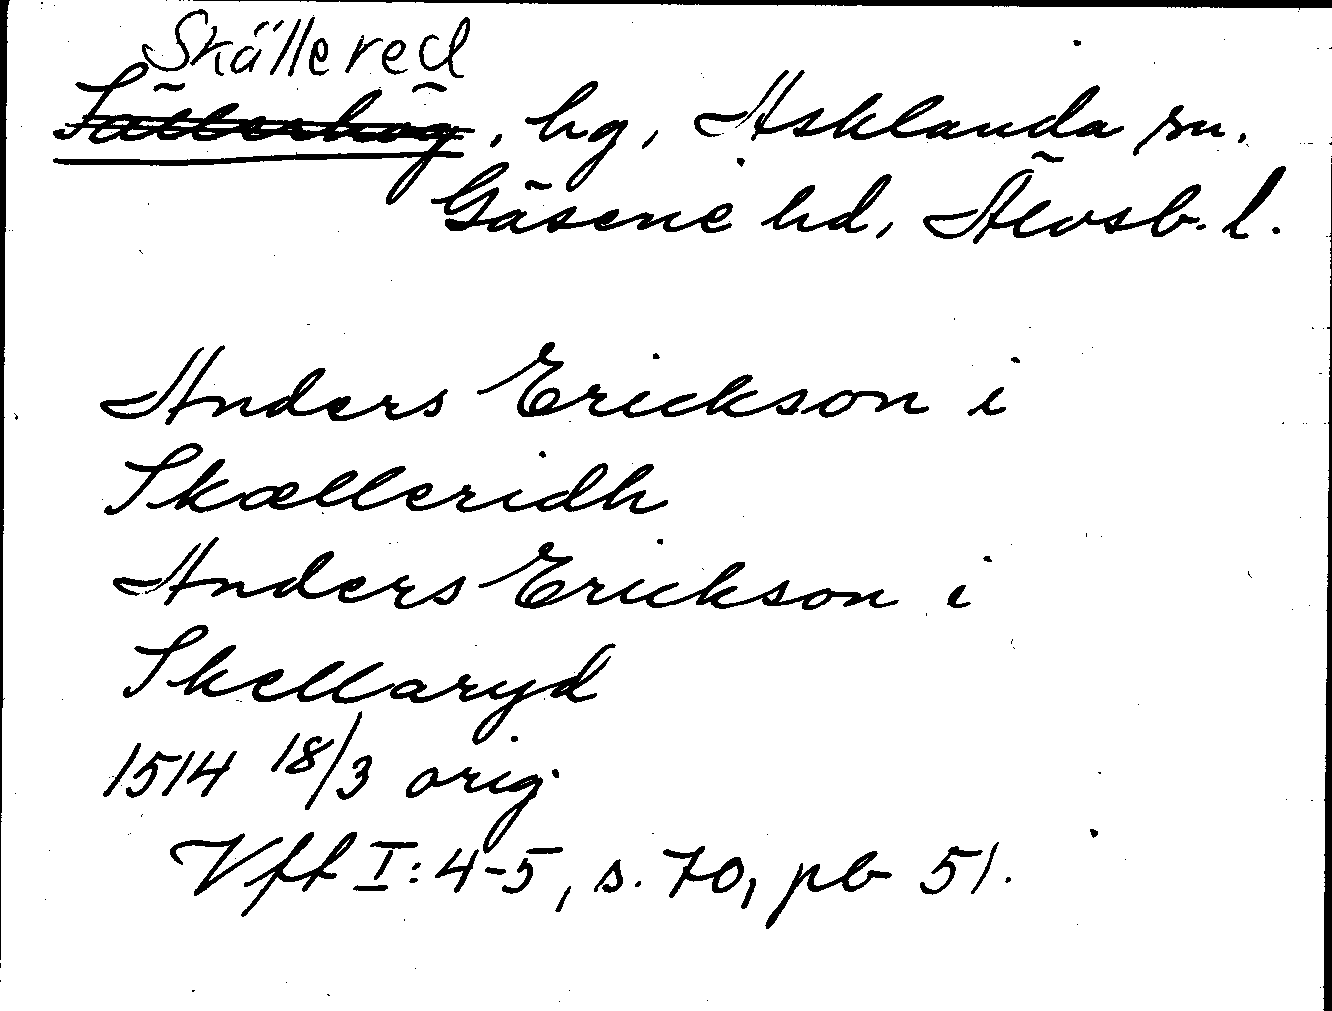 Skällered
Sällerhög, hg, Asklanda sn.
Gäsene hd, Älvsb. l.
Anders Erickson i
Skælleridh
Anders Erickson i
Skellaryd
1514 18/3 orig.
Vff I: 4-5, s. 70, pb 51.